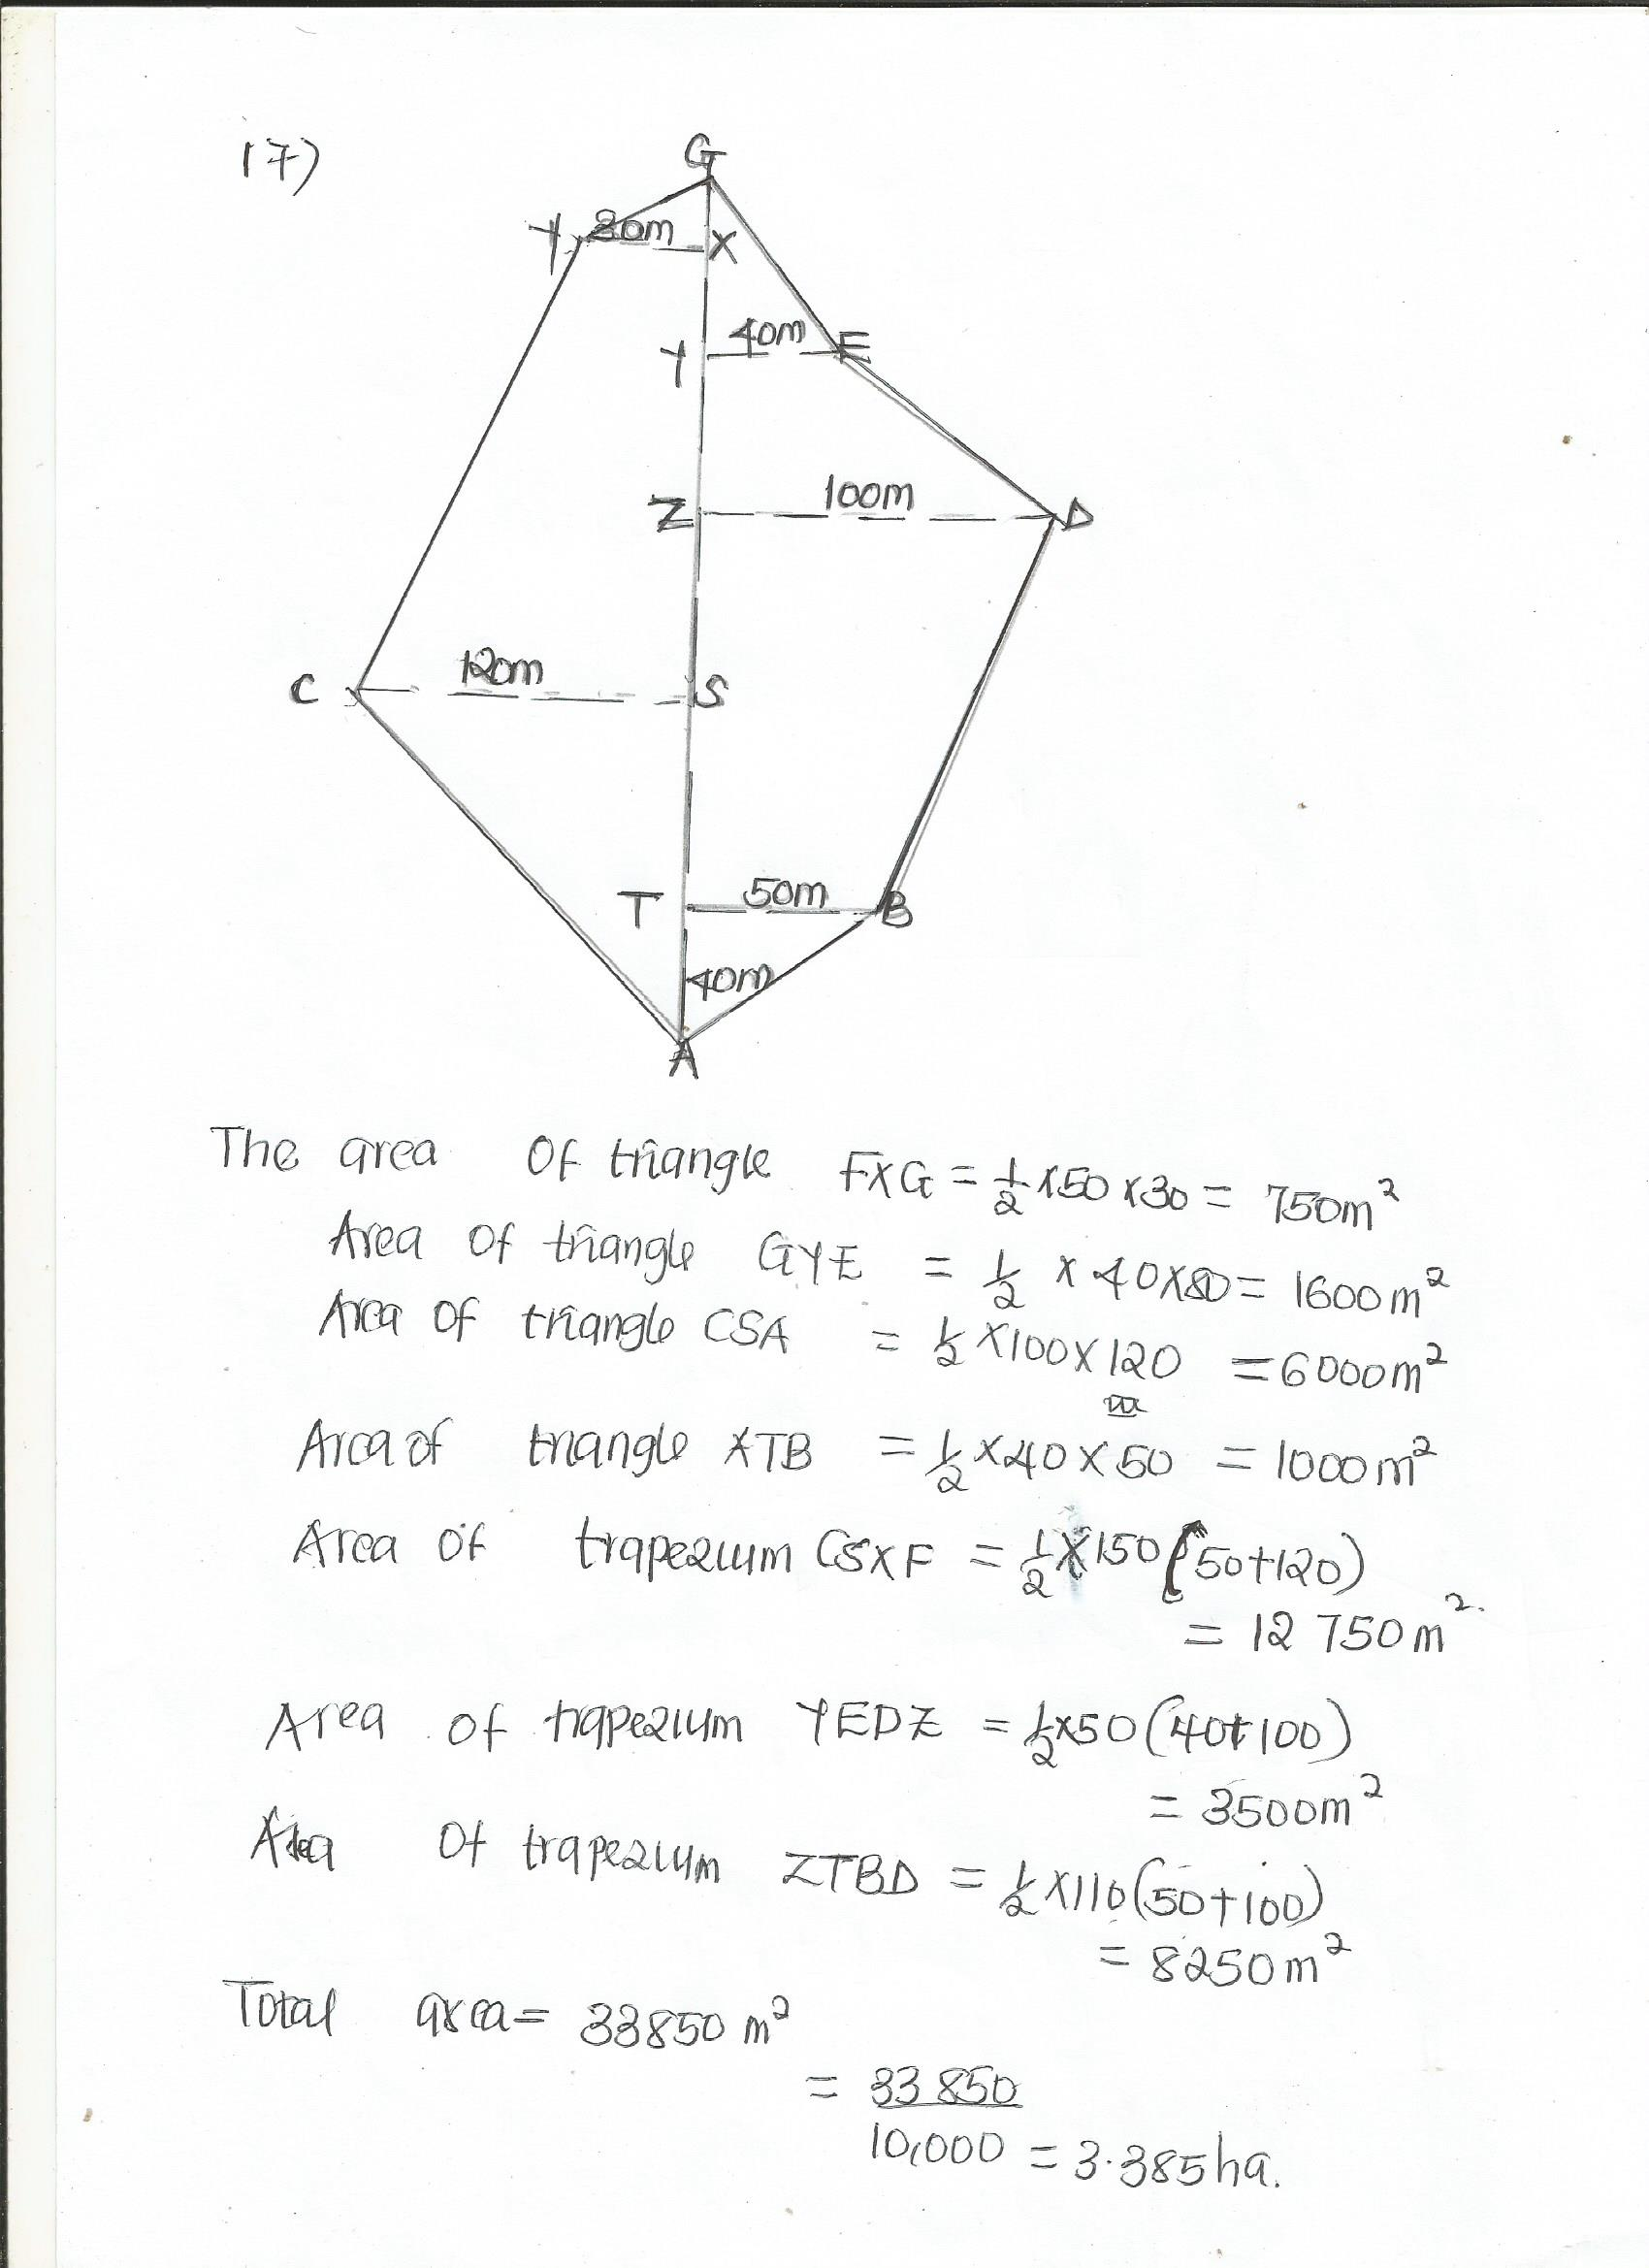 17)
G
Y 30m X
Y 40m E
Z 100m D
C 120m S
T 50m B
40m
A
The area Of triangle FXG = 1/2 x50 x30 = 750m²
Area Of triangle GYE = 1/2 x 40x80 = 1600m²
Area Of triangle CSA = 1/2 x100x120 = 6000m²
Area of triangle XTB = 1/2 x40 x 50 = 1000m²
Area Of trapezium CSXF = 1/2 x150 (50+120)
= 12 750m².
Area Of trapezium YEDZ = 1/2x50(40+100)
= 3500m²
Area Of trapezium ZTBD = 1/2 x110(50+100)
= 8250m²
Total area = 33850 m²
= 33 850
10,000 = 3.385ha.